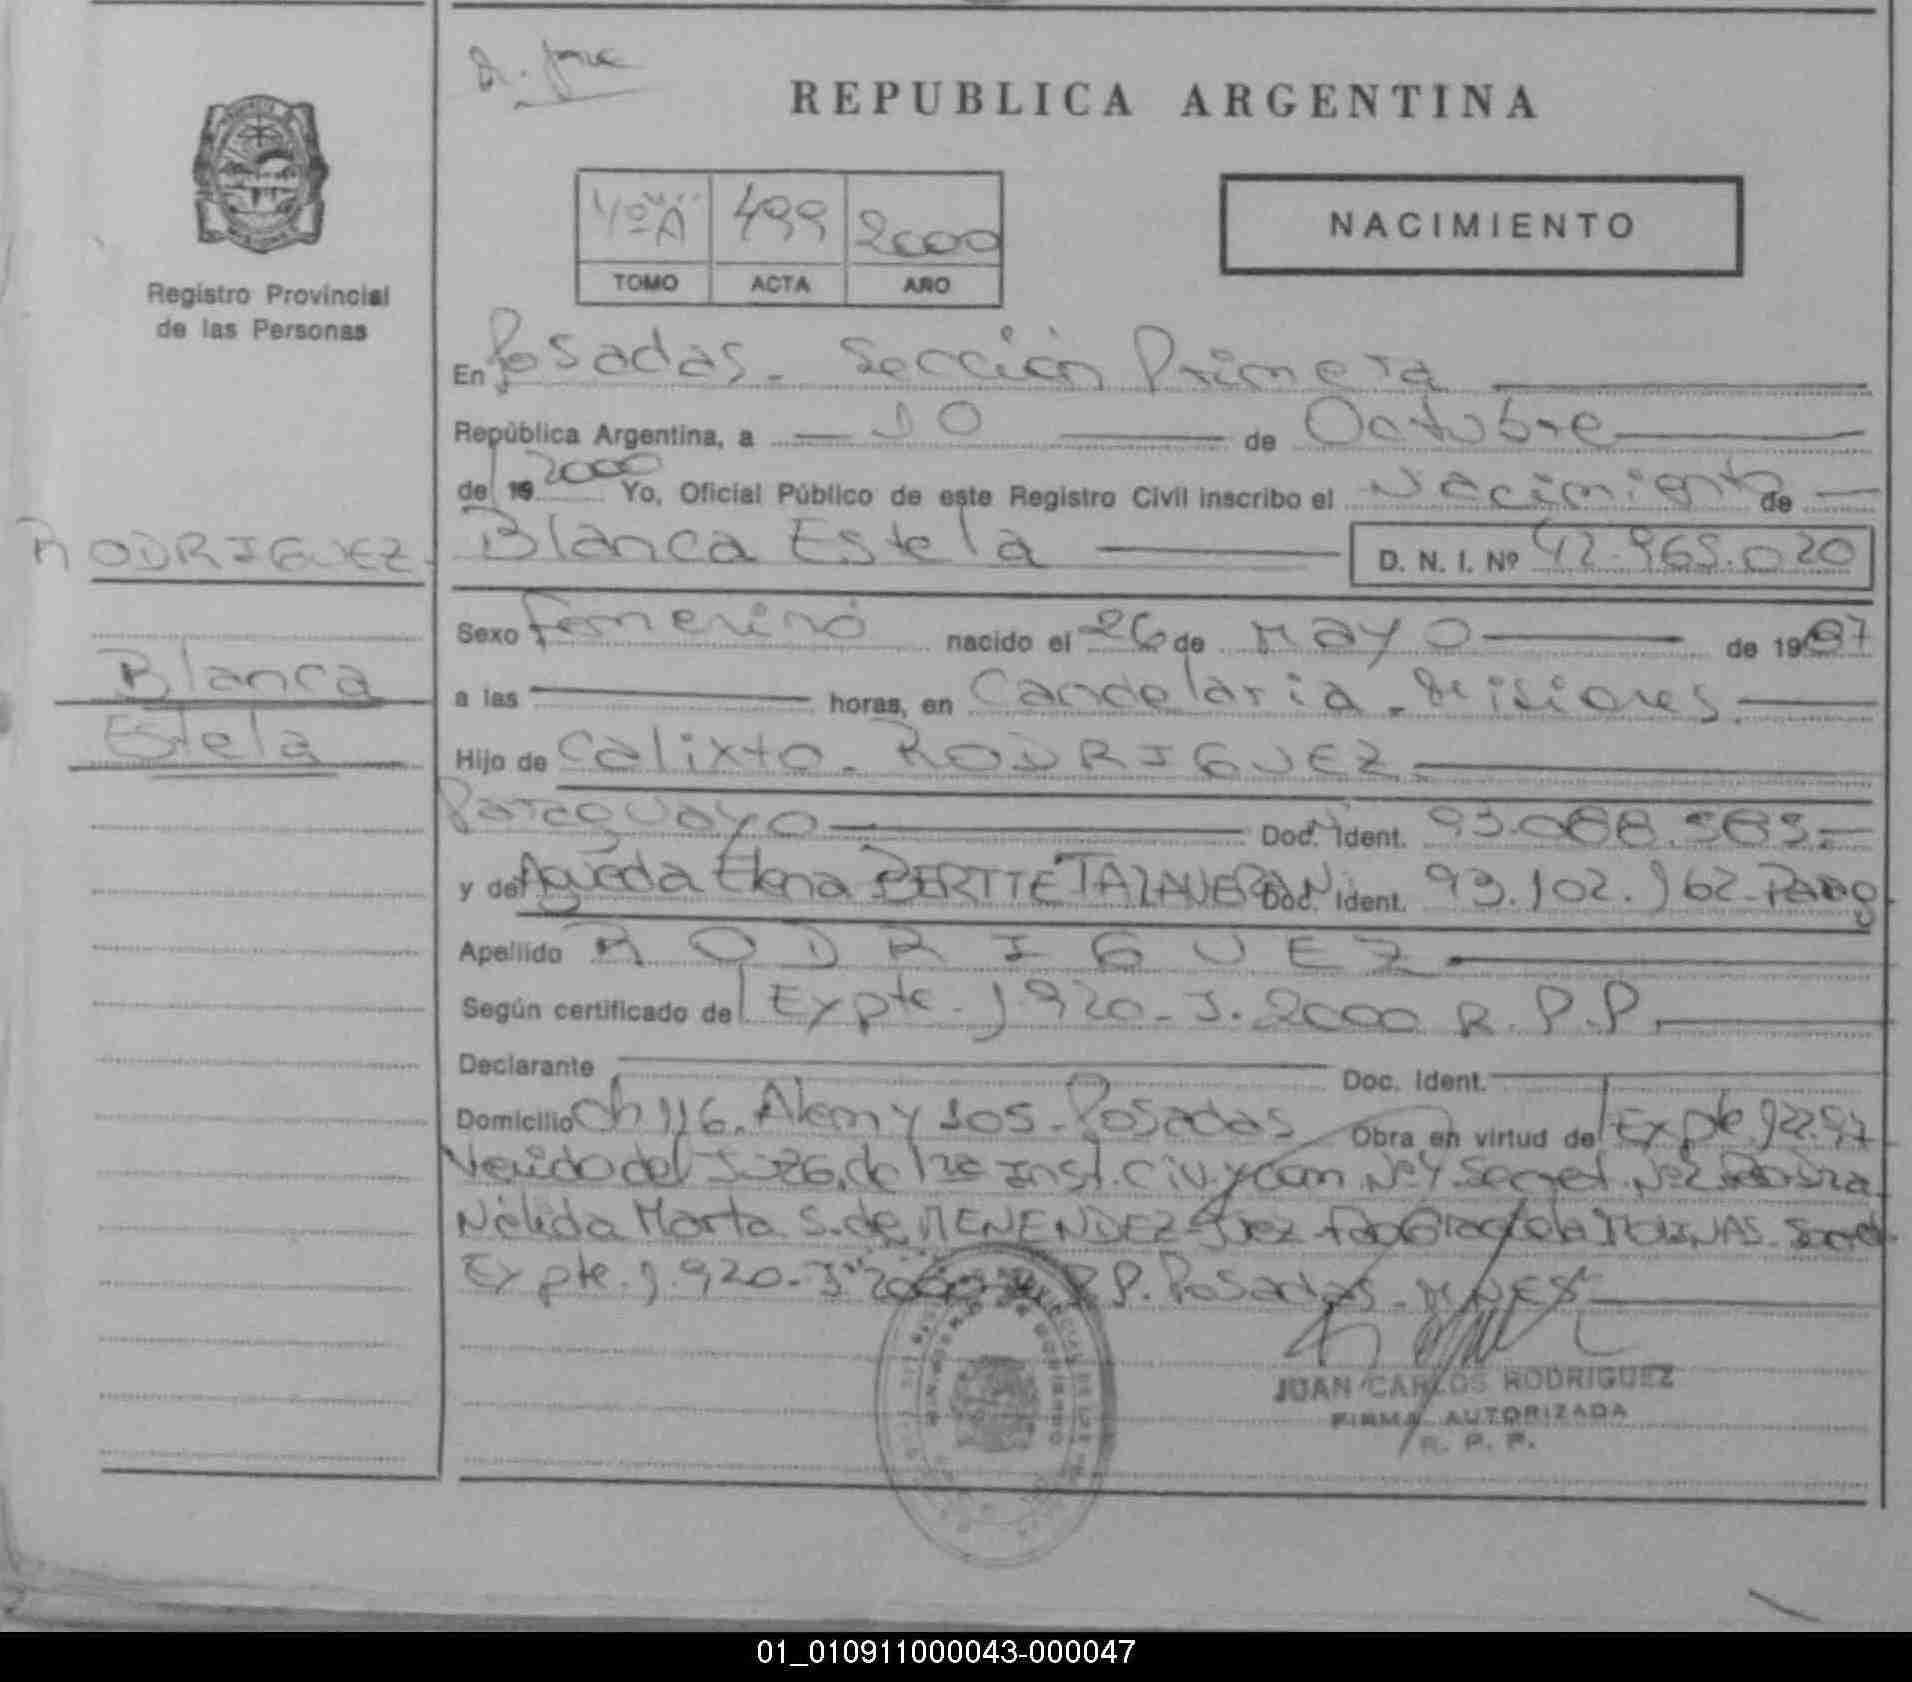 REPUBLICA ARGENTINA
4º A 499 2000
TOMO ACTA AÑO
NACIMIENTO
Registro Provincial
de las Personas
En Posadas - Sección Primera
República Argentina, a 10 de Octubre
de 19 2000 Yo, Oficial Público de este Registro Civil inscribo el Nacimiento de
RODRIGUEZ
Blanca Estela D. N. I. Nº 42.965.020
Sexo femenino nacido el 26 de Mayo de 19
Blanca
Estela
a las horas, en Candelaria - Misiones
Hijo de Calixto - RODRIGUEZ
Paraguayo Doc. Ident. 93.088.585
y de Agueda Elena TALAVERA Doc. Ident. 93.102.162 - Parag
Apellido RODRIGUEZ
Según certificado de Expte. 1920 - J. 2000 R. P. P.
Declarante Doc. Ident.
Domicilio Ch 116. Alem y 105 - Posadas Obra en virtud de Expte.
Venido del Juzg. de 1ra Inst. Civ. y Com Nº 4. Secret. Nº 2
Nélida Marta S. de MENENDEZ Juez Graciela
Expte. 1.920 - J 2000 R. P. P. Posadas - MNES
JUAN CARLOS RODRIGUEZ
FIRMA AUTORIZADA
R. P. P.
01_010911000043-000047